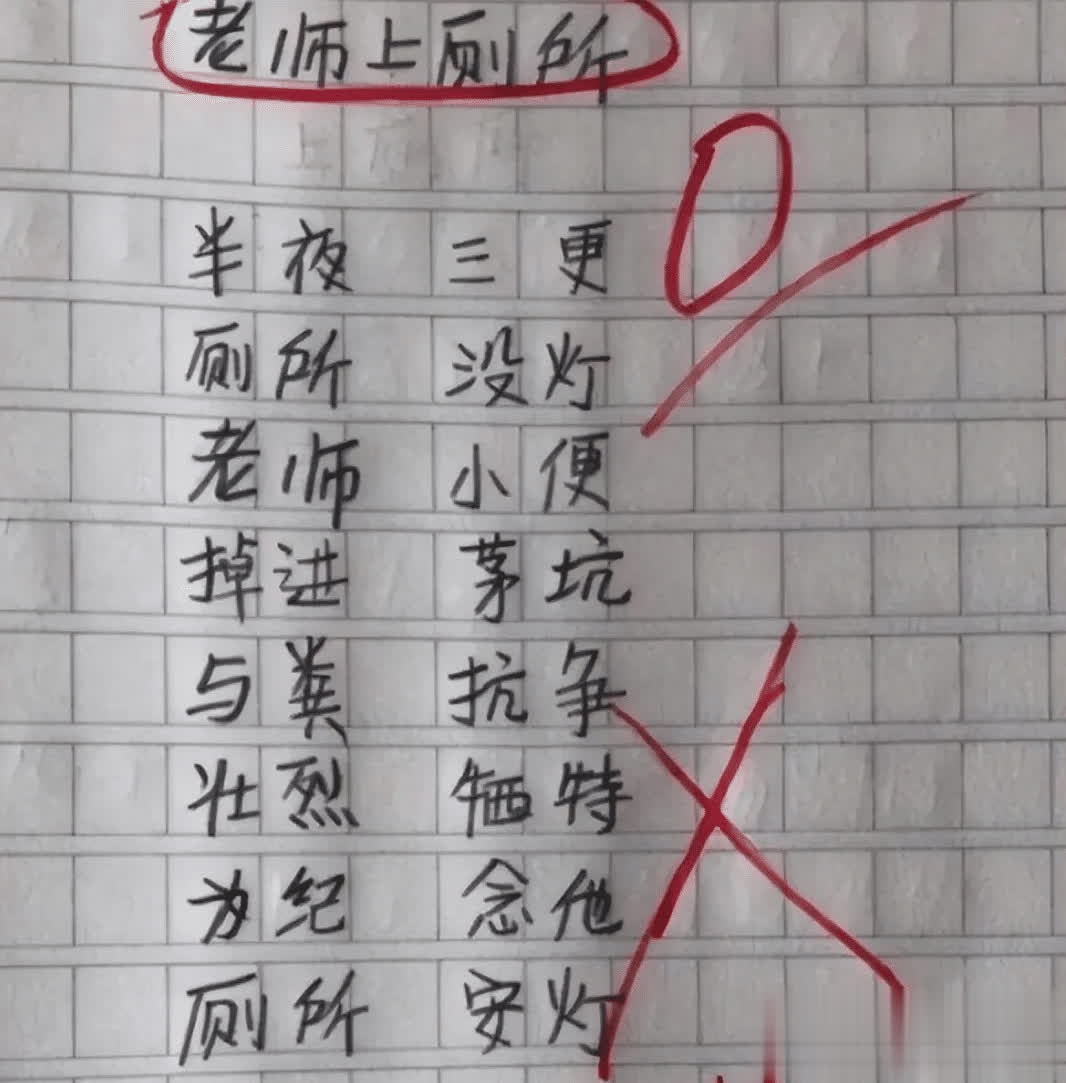 老师上厕所
0
半夜三更
厕所没灯
老师小便
掉进茅坑
与粪抗争
壮烈牺特
为纪念他
厕所安灯